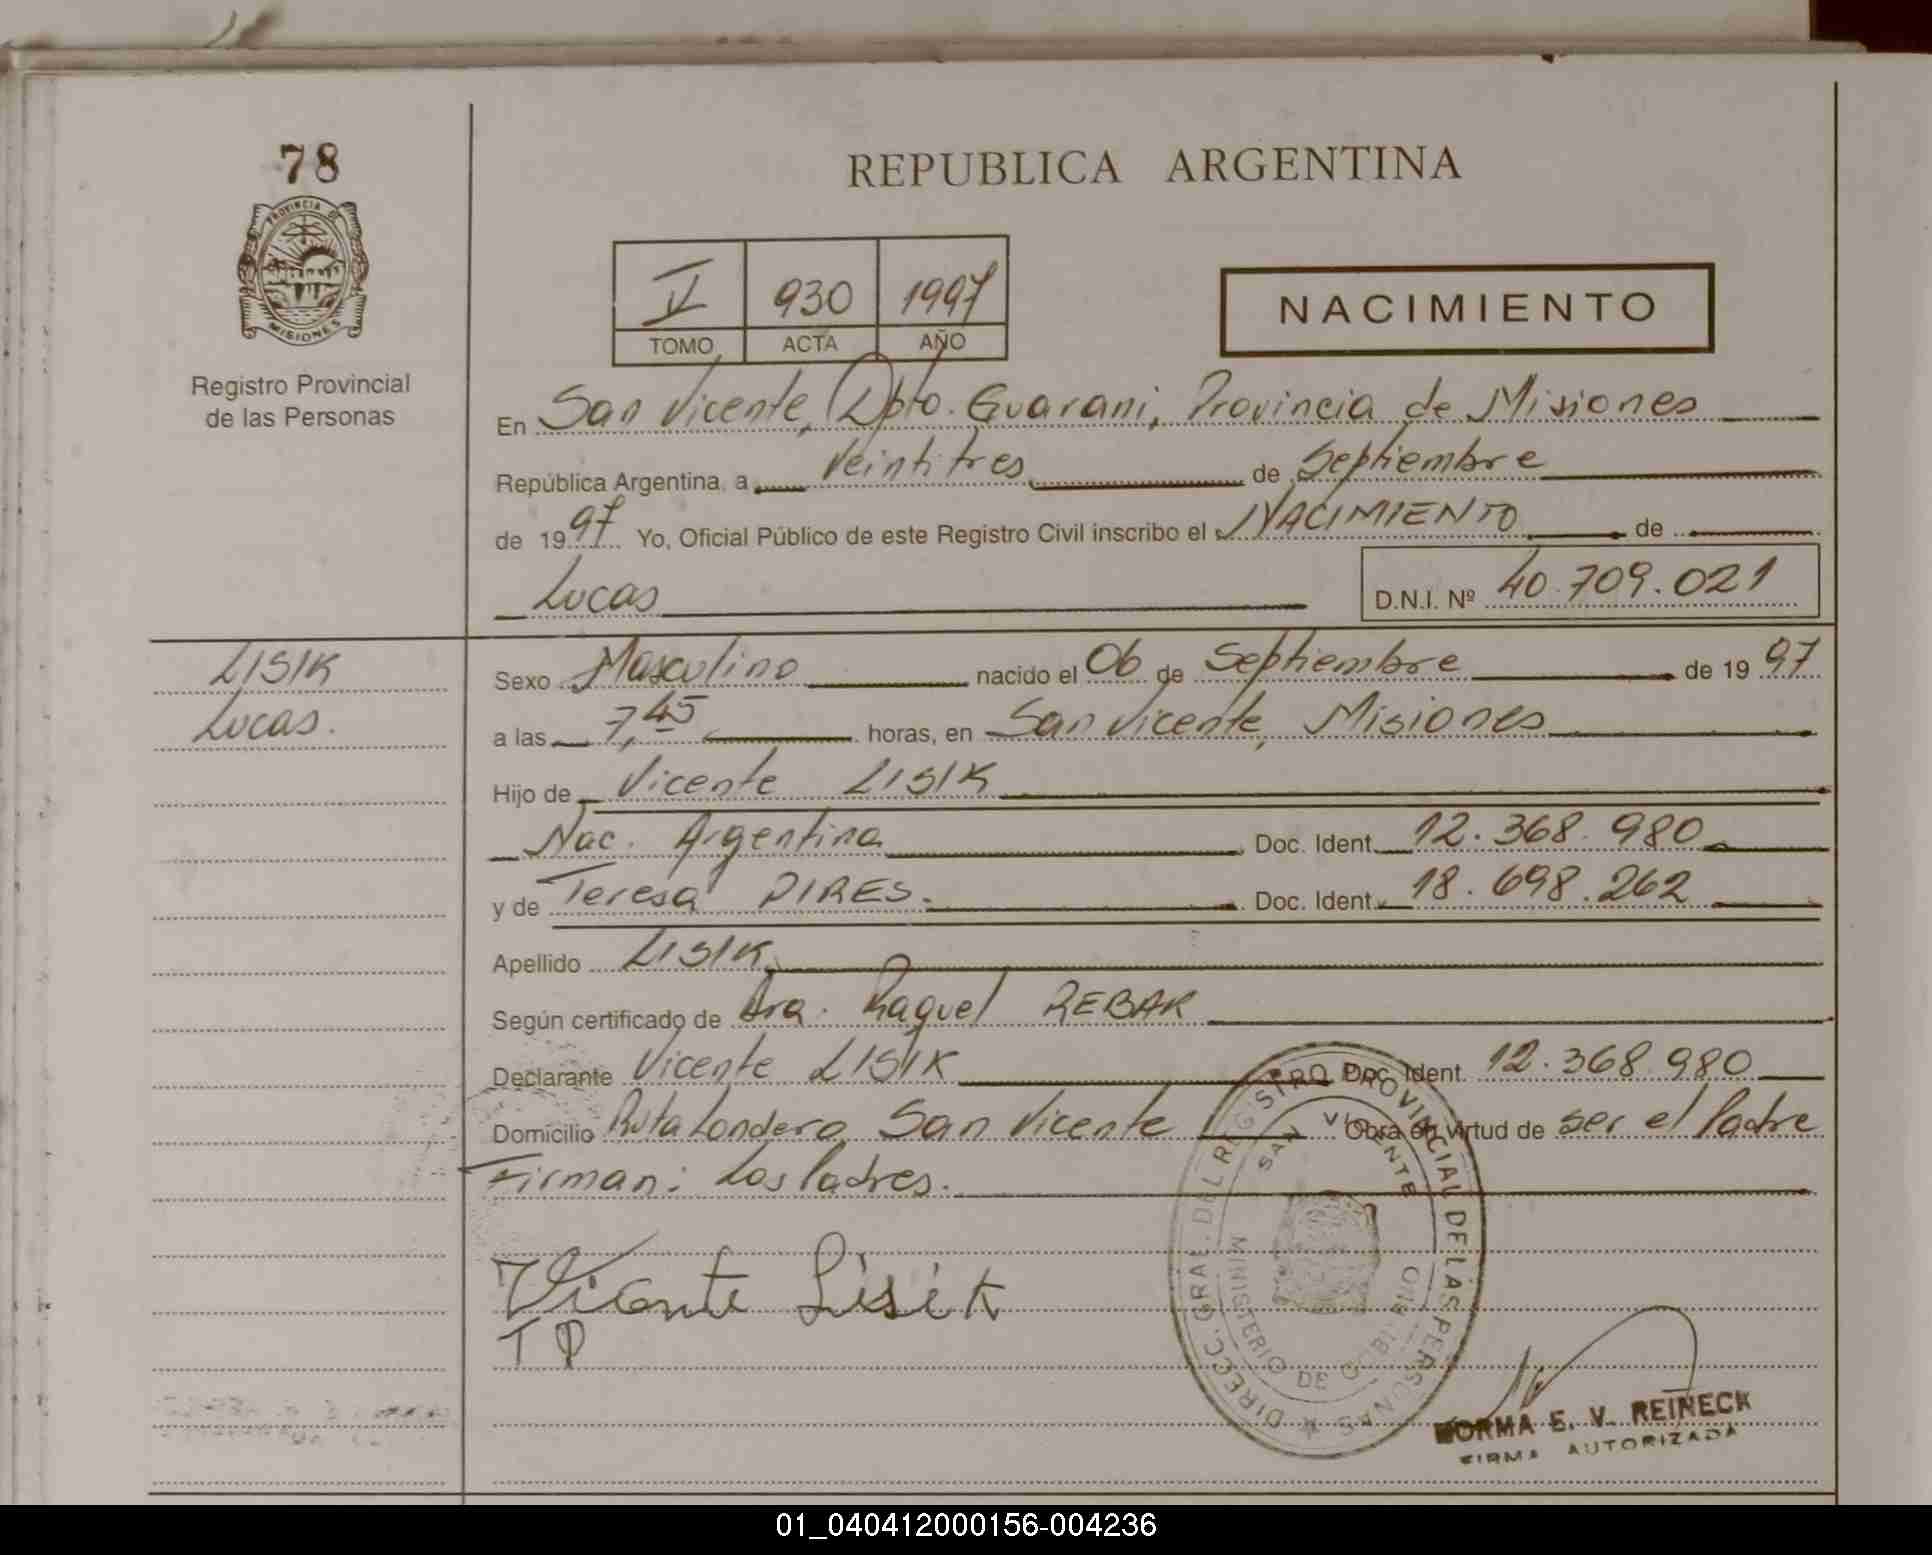 78
PROVINCIA DE
MISIONES
Registro Provincial
de las Personas
REPUBLICA ARGENTINA
V 930 1997
TOMO ACTA AÑO
NACIMIENTO
En San Vicente, Dpto. Guarani, Provincia de Misiones
República Argentina, a Veintitres de Septiembre
de 1997 Yo, Oficial Público de este Registro Civil inscribo el NACIMIENTO de
Lucas D.N.I. Nº 40.709.021
LISIK
Lucas.
Sexo Masculino nacido el 06 de Septiembre de 1997
a las 7,45 horas, en San Vicente, Misiones
Hijo de Vicente LISIK
Nac. Argentina Doc. Ident. 12.368.980
y de Teresa PIRES. Doc. Ident. 18.698.262
Apellido LISIK
Según certificado de Dra. Raquel REBAK
Declarante Vicente LISIK Doc. Ident. 12.368.980
Domicilio Ruta Londero San Vicente Obra en virtud de ser el Padre
Firman: Los Padres.
Vicente Lisik
T P
DIRECC. GRAL. DEL REGISTRO PROVINCIAL DE LAS PERSONAS
SAN VICENTE
MINISTERIO DE GOBIERNO
NORMA E. V. REINECK
FIRMA AUTORIZADA
01_040412000156-004236